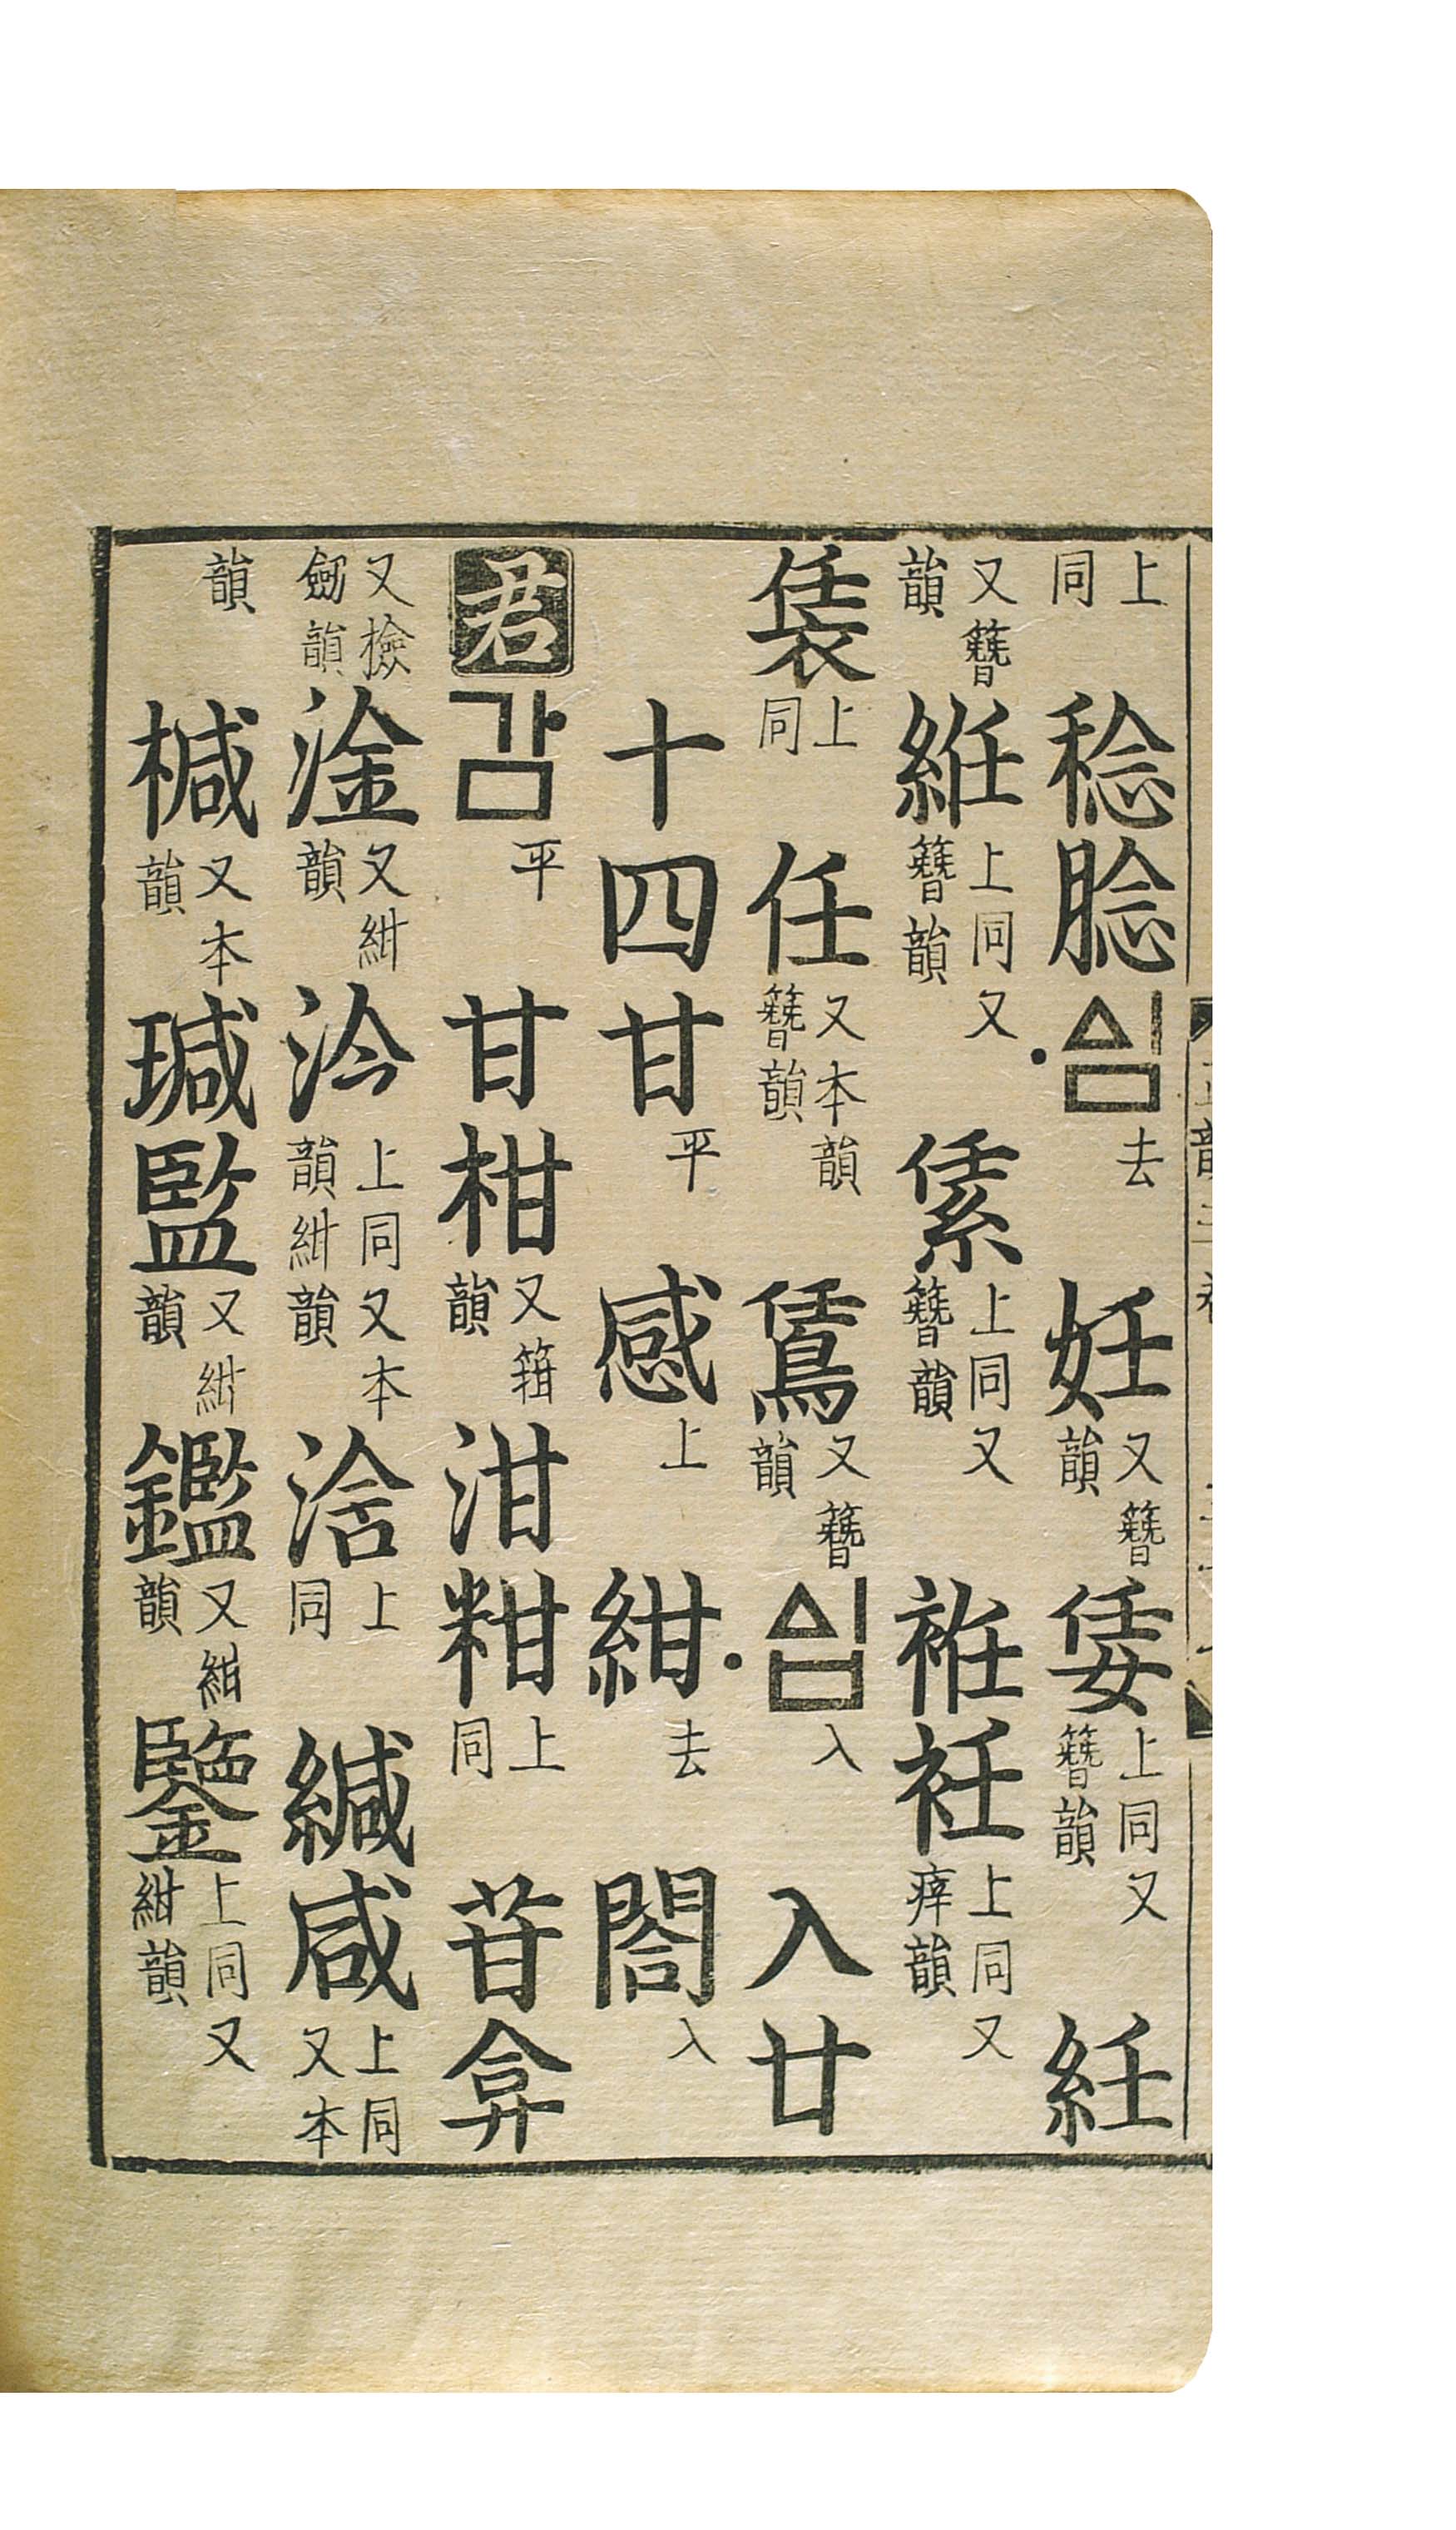 上同 稔腍 〮ᅀᅵᆷ 去 妊 又簪韻 上同又簪韻 紝
又簪韻 絍 上同又簪韻 上同又簪韻 袵衽 上同又㾕韻
上同 任 又本韻簪韻 又簪韻 〮ᅀᅵᆸ 入 入廿
十四甘平 感上 紺去 閤入
君 감 平 甘柑 又箝韻 泔粓 上同 苷弇
又檢劒韻 淦 又紺韻 汵 上同又本韻紺韻 浛 上同 緘咸 上同又本
韻 椷 又本韻 瑊監 又紺韻 鑑 又紺韻 鑒 上同又紺韻